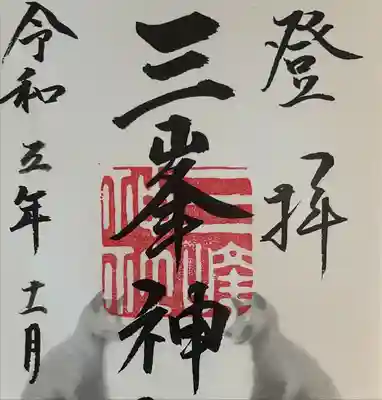 登拝
三峯神
令和五年十一月